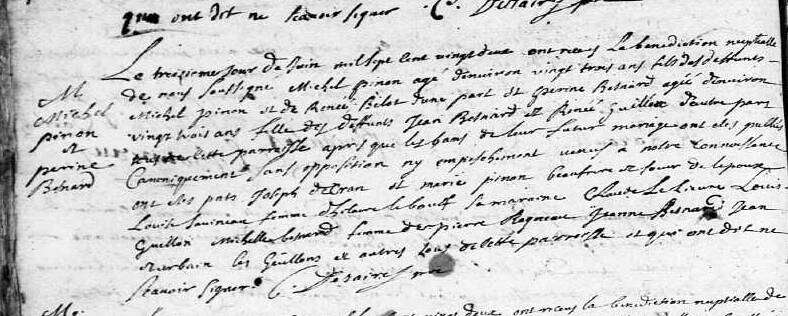 qui ont dit ne scavoir signer
Le treziesme jour de Juin mil sept cent vingt deux ont receus La benediction nuptialle
de nous soussigné Michel pinon agé d'environ vingt trois ans fils des deffunts
Michel pinon et de Renée Bilot d'une part et perine Besnard agée d'environ
vingt trois ans fille des deffunts Jean Besnard et Renée Guillon d'autre part
tous de cette parroisse apres que les bans de leur futur mariage ont estes publiés
Canoniquement sans opposition ny empeschement venus à notre connoissance
ont estes pnts Joseph et marie pinon beaufrere et soeur de lepoux
Louise femme d'hilaire leboeuf sa maraine Claude Le Louis
Guillon Michelle femme de pierre Jeanne Besnard Jean
et urbain les Guillons et autres tous de cette parroisse et qui ont dit ne
scavoir signer
M
Michel
pinon
et
perine
Besnard
vingt deux ont receus la benediction nuptialle de